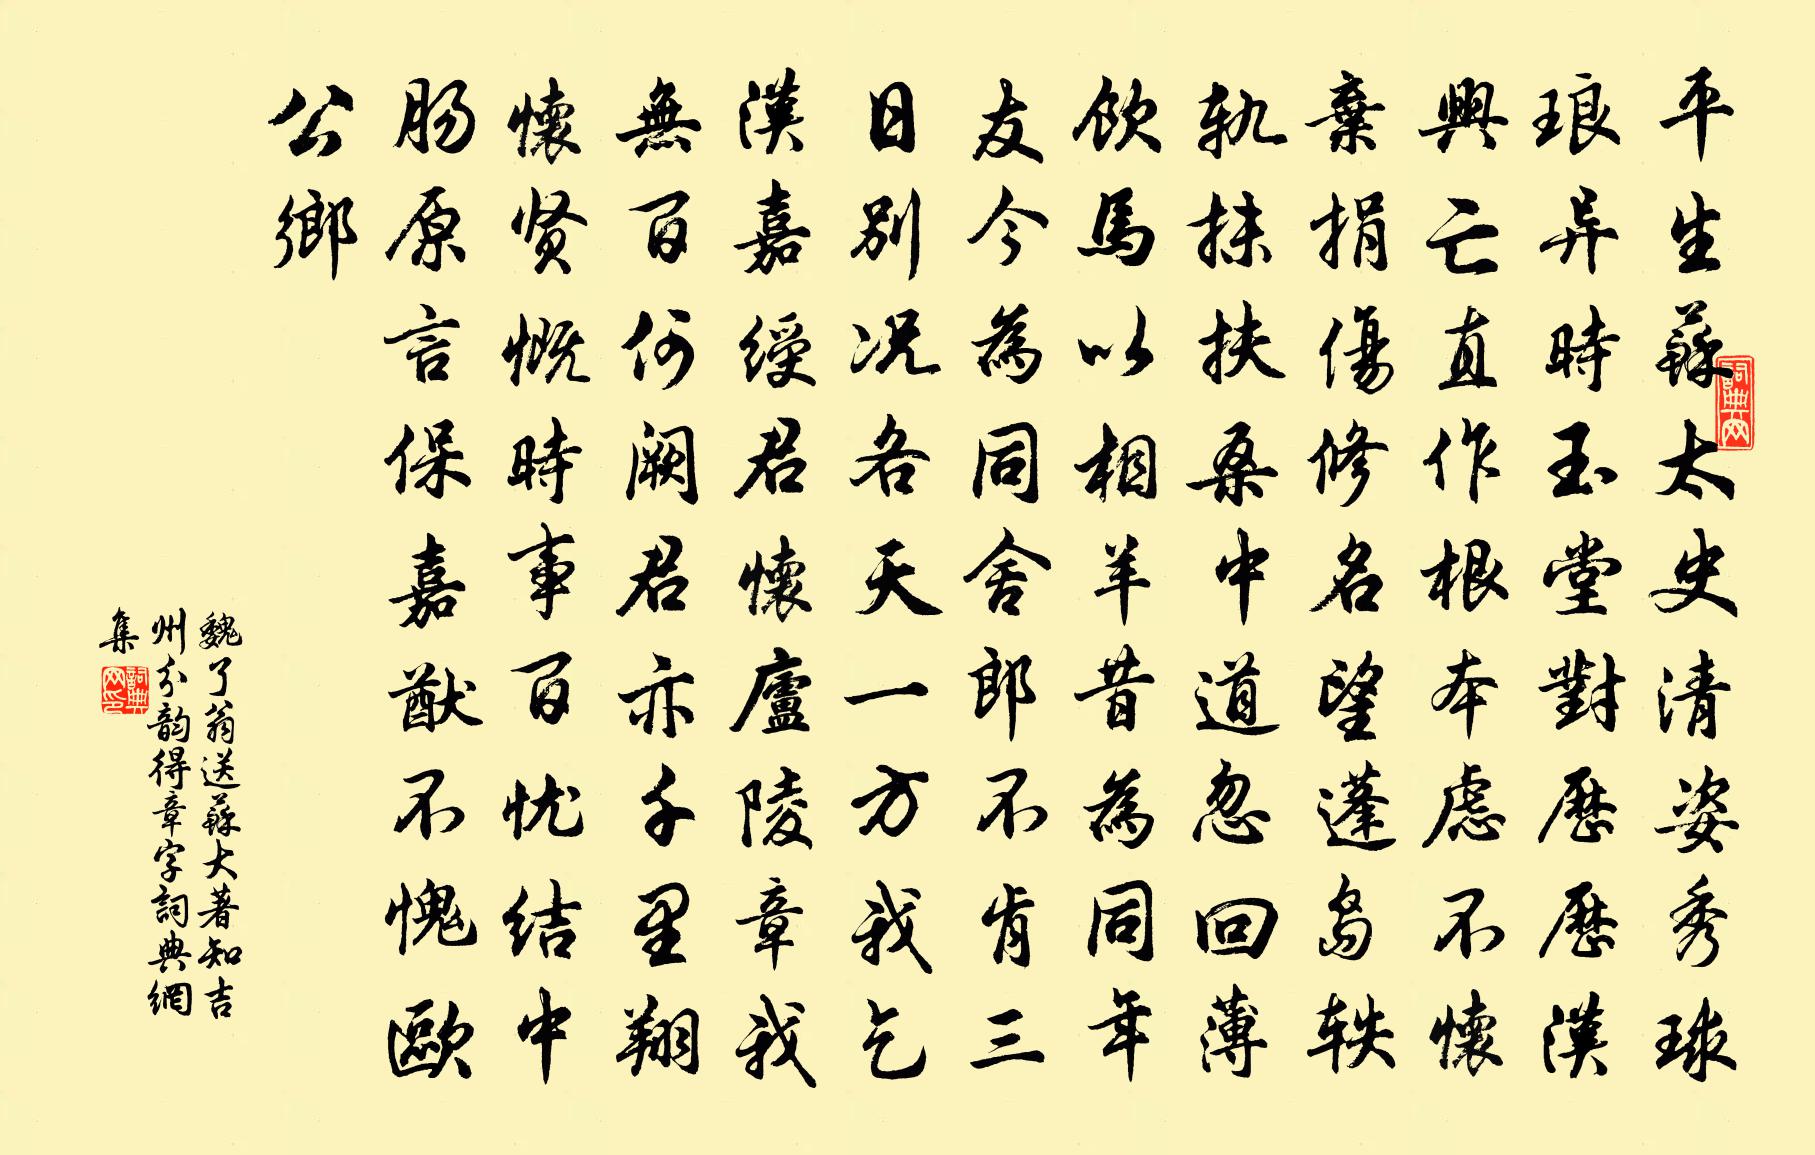 平生蘇太史清姿秀球
琅异時玉堂對歷歷漢
興亡直作根本慮不懷
棄捐傷修名望蓬島軼
軌抹扶桑中道忽回薄
飲馬以相羊昔為同年
友今為同舍郎不肯三
日別况各天一方我乞
漢嘉綬君懷廬陵章我
無百何闕君亦千里翔
懷贤慨時事百忧结中
肠原言保嘉猷不愧歐
公鄉
魏了翁送蘇大著知吉
州分韵得章字詞典網
集
詞典网
詞典网印